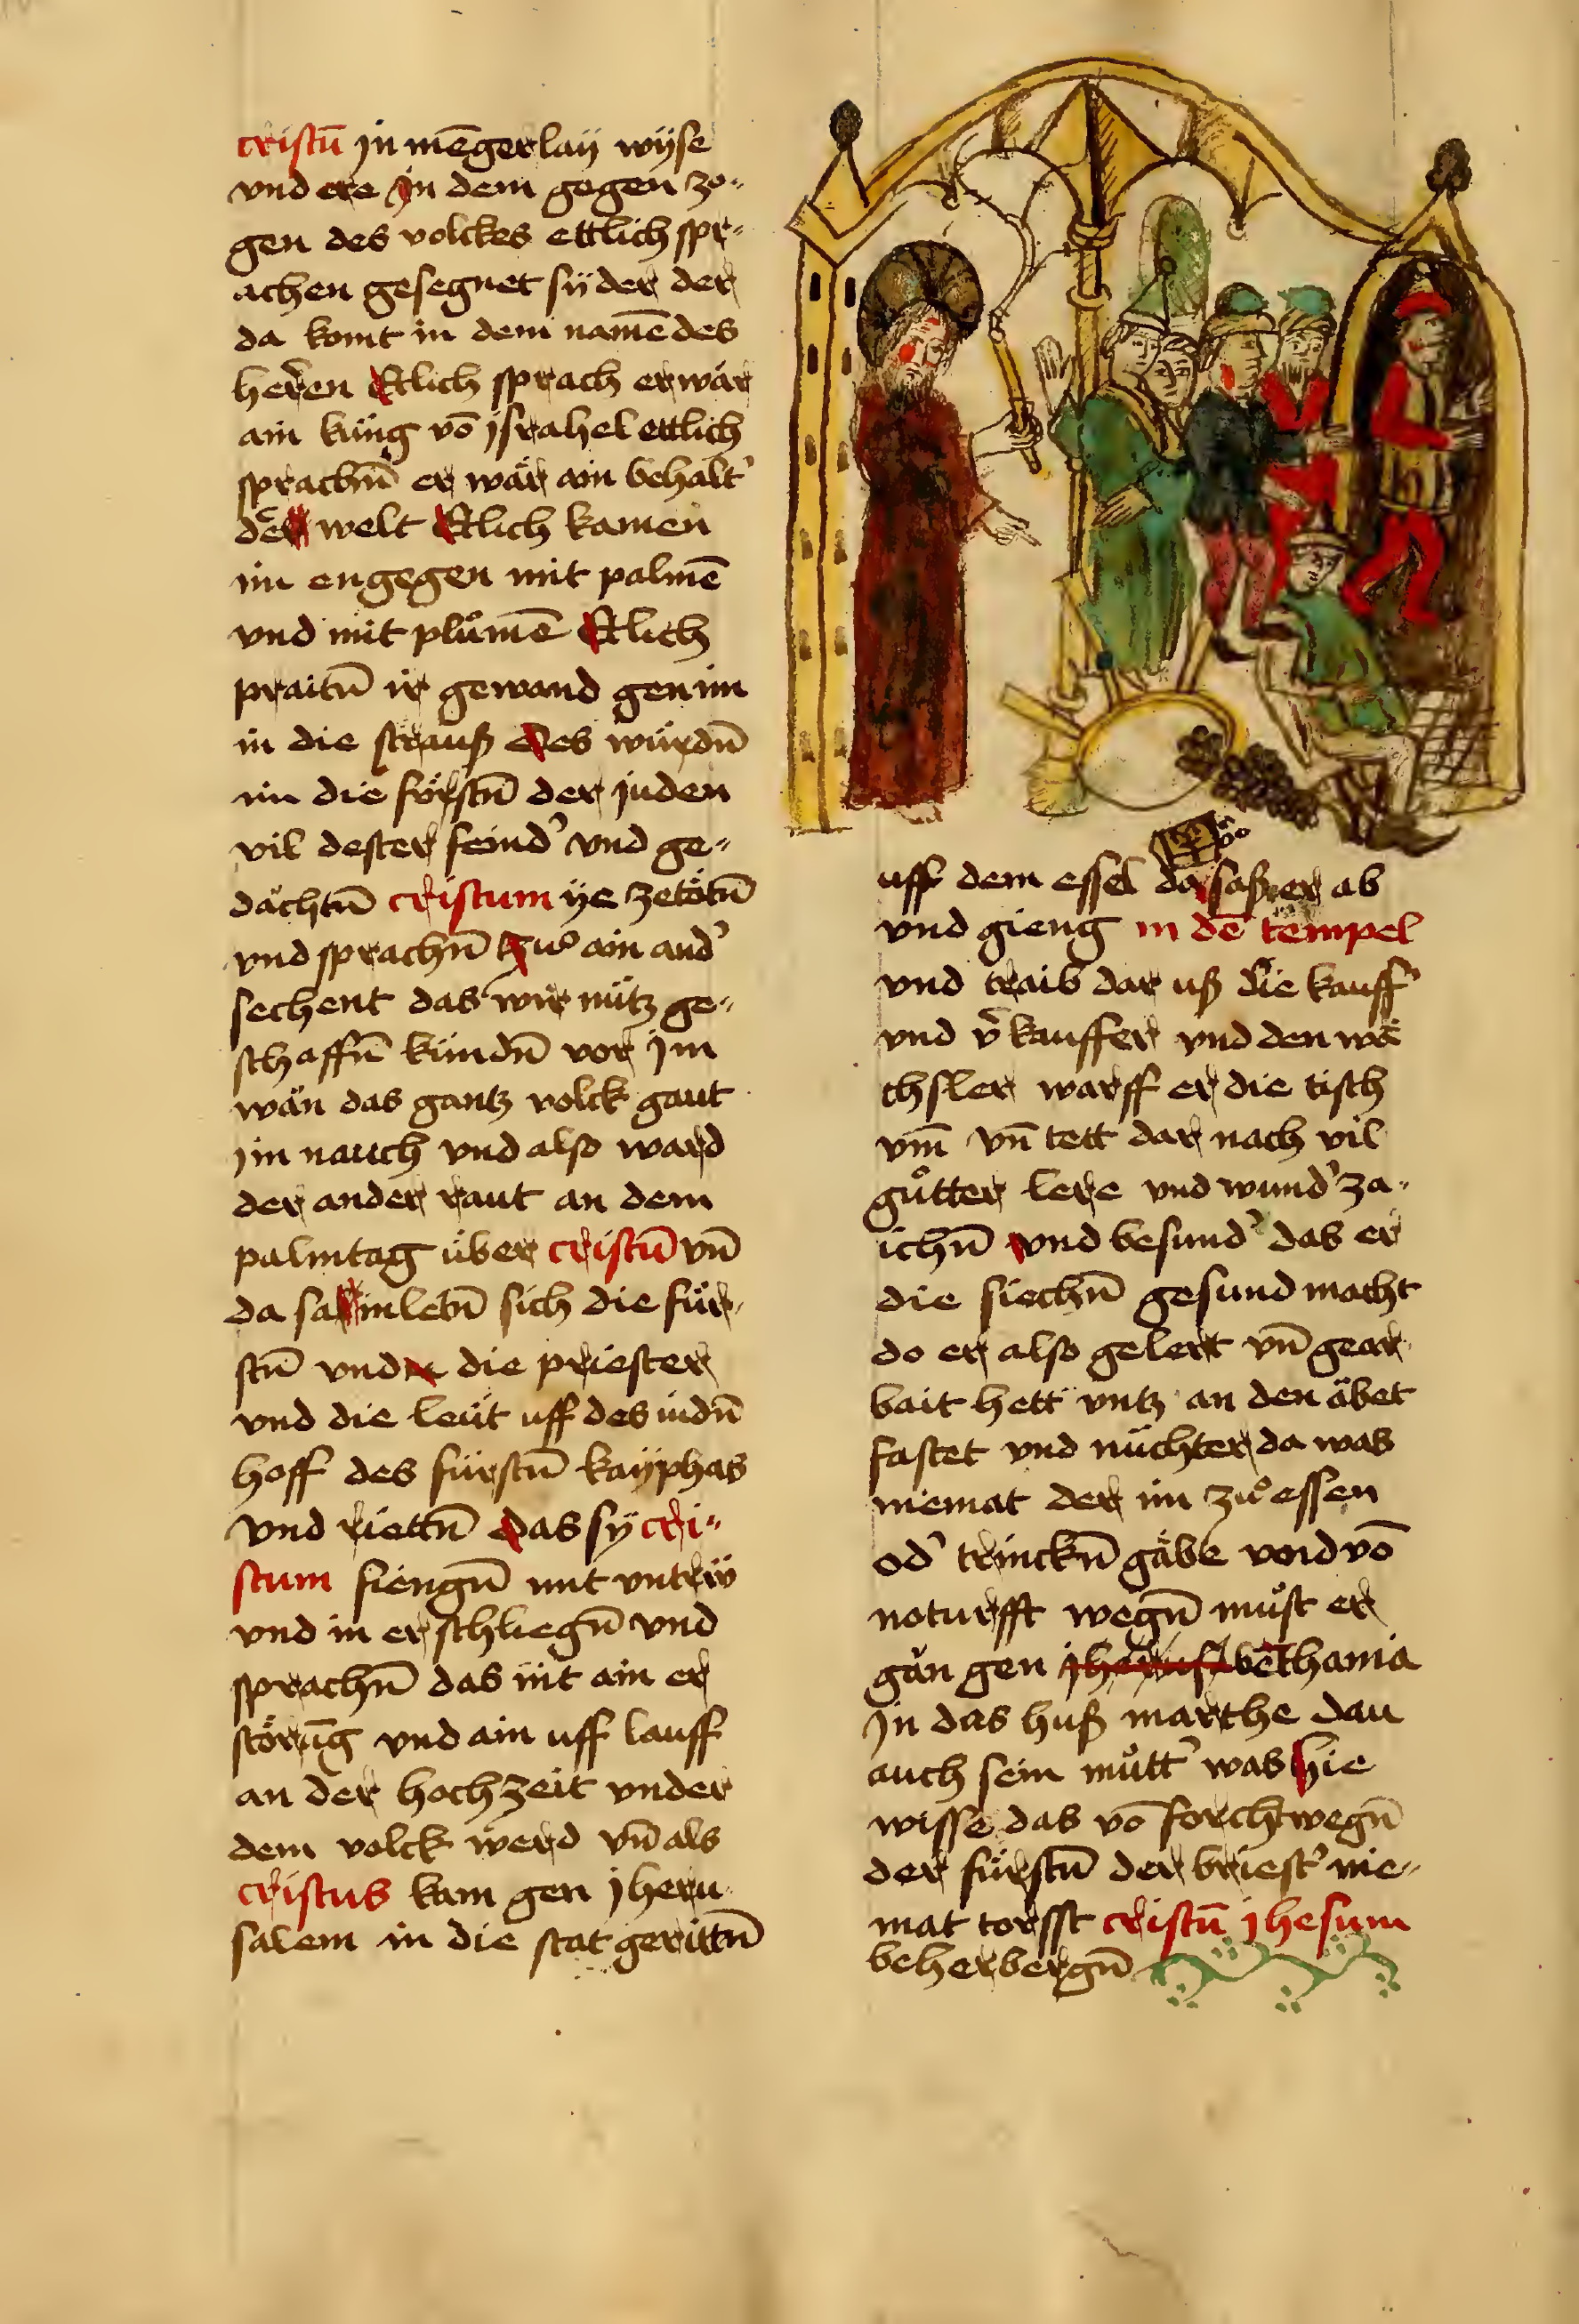 cristū jn mēgerlaÿ wÿse
vnd ere Jn dem gegen zo-
gen des volckes ettlich spr-
achen gesegnet sÿ der der
da komt in dem namē des
herren Etlich sprach er wär
ain küng vō jsrahel ettlich
sprachn̄ er wär ain behalt'
der welt Etlich kamen
im engegen mit palmē
vnd mit plůmē Etlich
praitn̄ ir gewand gen im
in die strauß Des wurdn̄
im die förstn̄ der juden
vil dester feind' vnd ge-
dächtn̄ cristum ÿe zetötn̄
vnd sprachn̄ zů ain and'
sechent das wir nütz ge-
schaffn̄ kündn̄ vor jm
wän das gantz volck gaut
jm nauch vnd also ward
der ander raut an dem
palmtag über cristū vn̄
da samletn̄ sich die für-
stn̄ vnd die priester
vnd die leüt uff des judn̄
hoff des fürstn̄ kaÿphas
vnd riettn̄ Das sÿ cri-
stum fiengn̄ mit vntrw
vnd in erschliegn̄ vnd
sprachn̄ das nit ain er
störūg vnd ain uff lauff
an der hochzeit vnder
dem volck werd vn̄ als
cristus kam gen jheru-
salem in die stat gerittn̄
uff dem essel da saß er ab
vnd gieng in dē tempel
vnd traib dar uß die kauff'
vnd v'kauffer vnd den wë
chsler warff er die tisch
vm̄ vn̄ tett dar nach vil
gůtter lere vnd wund' za-
ichn̄ vnd besund' das er
die siechn̄ gesund macht
do er also gelert vn̄ gear-
bait hett vntz an den äbet
fastet vnd nüchter da was
niemat der im zů essen
od' trinckn̄ gäbe vnd vō
noturfft wegn̄ můst er
gän gen bethania
Jn das huß marthe dau
auch sein můtt' was hie
wisse das vō forcht wegn̄
der fürstn̄ der briest' nie-
mat torsst cristū jhesum
beherbergn̄